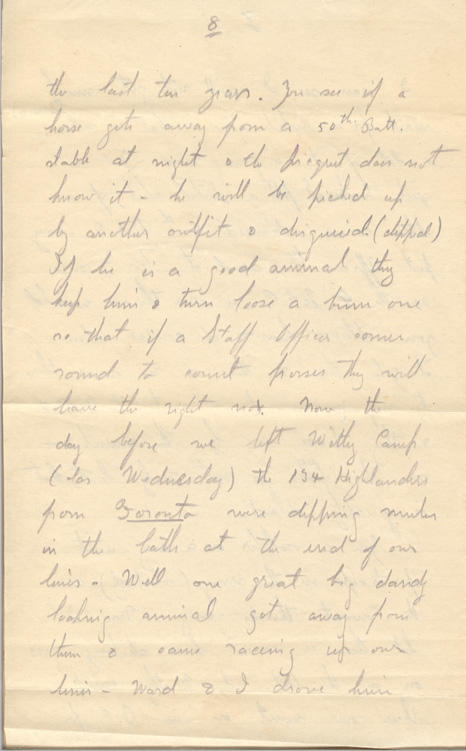 8
the last ten years. You see if a
horse gets away from a 50th Batt.
stable at night & the picquet does not
know it - he will be picked up
by another outfit & disguised (clipped)
If he is a good animal they
keep him & turn loose a bum one
so that if a Staff Officer comes
round to count horses they will
have the right no. Now the
day before we left Witley Camp
(Wednesday) the 134 Highlanders
from Toronto were dipping mules
in the baths at the end of our
lines - Well one great big dandy
looking animal got away from
them & came racing up our
lines - Ward & I drove him